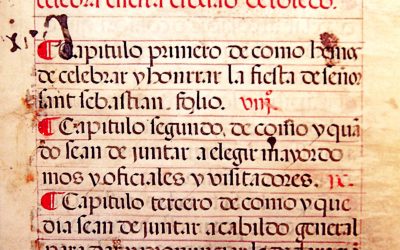 celebra en esta çiudad de toledo.
xij
¶ Capitulo primero de como hemos
de celebrar y honrrar la fiesta de señor
sant sebastian. folio. viij.
¶ Capitulo segundo, de como y quã
do sean de juntar a elegir mayordo
mos y oficiales y visitadores. ix.
¶ Capitulo tercero de como y que
dia sean de juntar a cabildo general